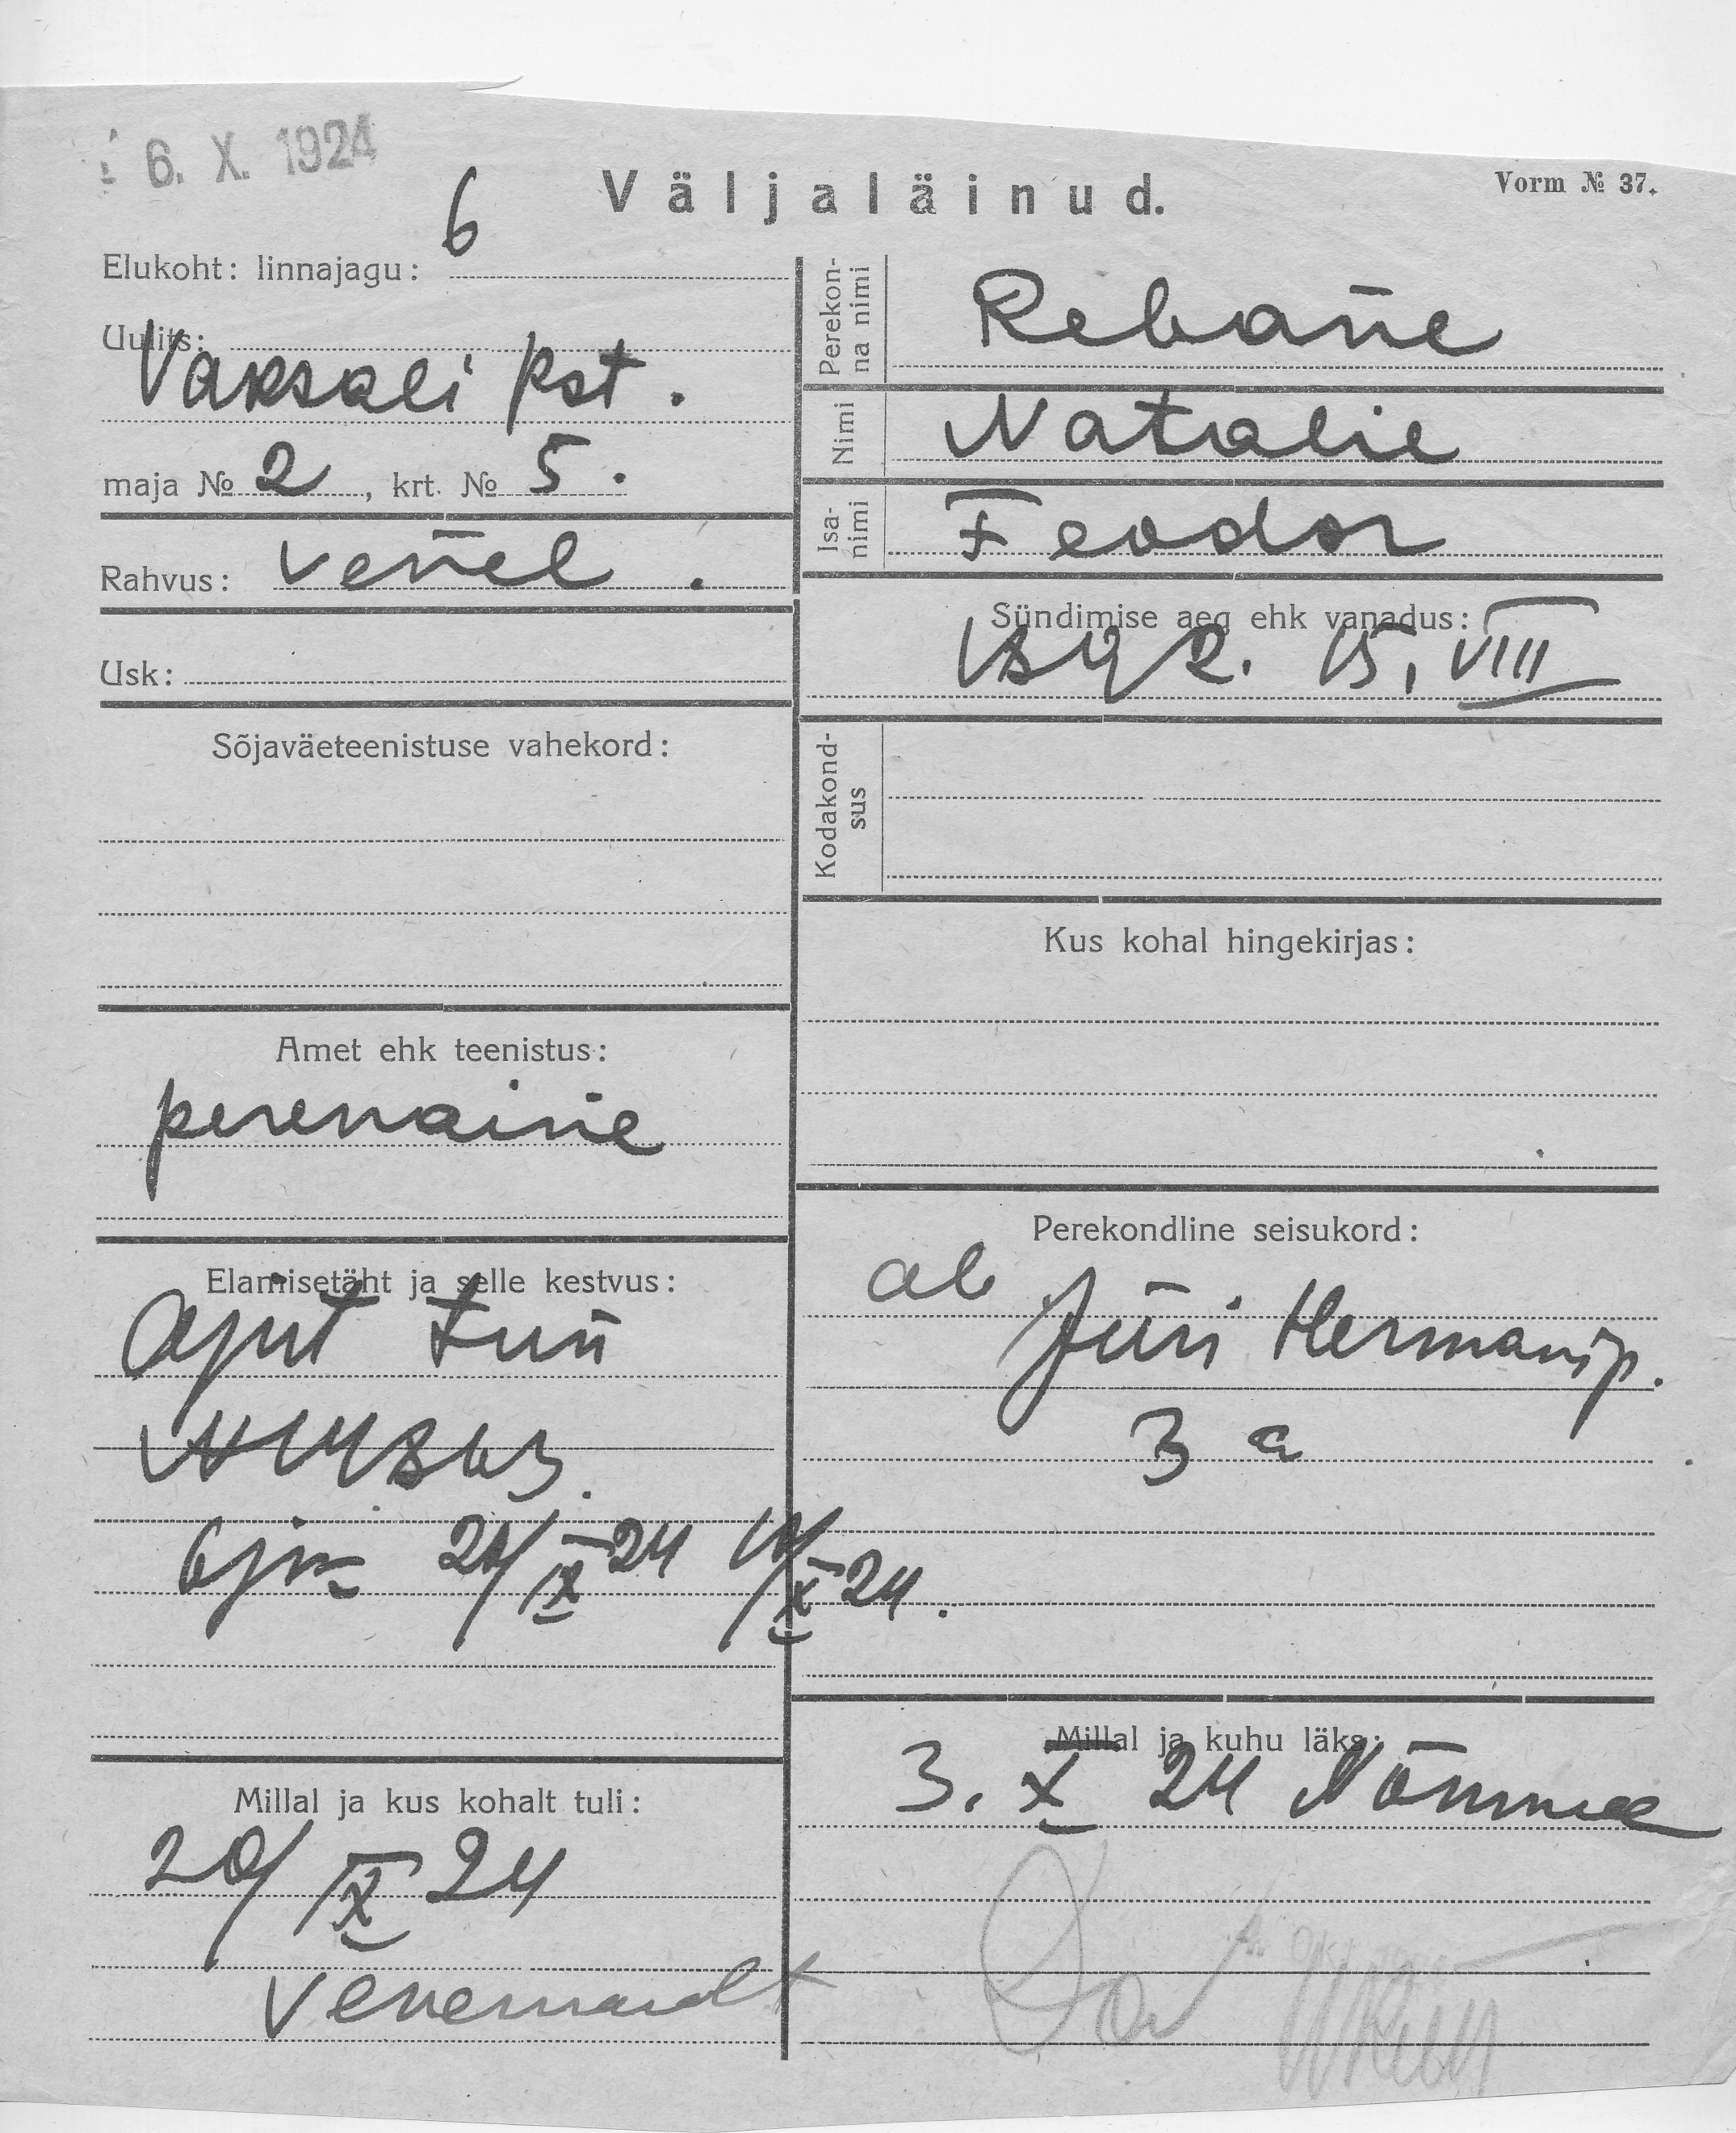 6. X. 1924
Väljaläinud.
Vorm № 37.
Elukoht: linnajagu: 6
Uulits:
Vaksali pst.
maja № 2, krt. № 5.
Rahvus: venel.
Usk:
Sõjaväeteenistuse vahekord:
Amet ehk teenistus:
perenaine
Elamisetäht ja selle kestvus:
ajut tun
20/IX 24
X 24.
Millal ja kus kohalt tuli:
20/IX 24
Venemaalt
Perekonna nimi
Rebane
Nimi
Natalie
Isanimi
Feodor
Sündimise aeg ehk vanadus:
1892. 15, VIII
Kodakondsus
Kus kohal hingekirjas:
Perekondline seisukord:
ab
Jüri Hermanip.
3 a
Millal ja kuhu läks:
3. X 24 Nõmme